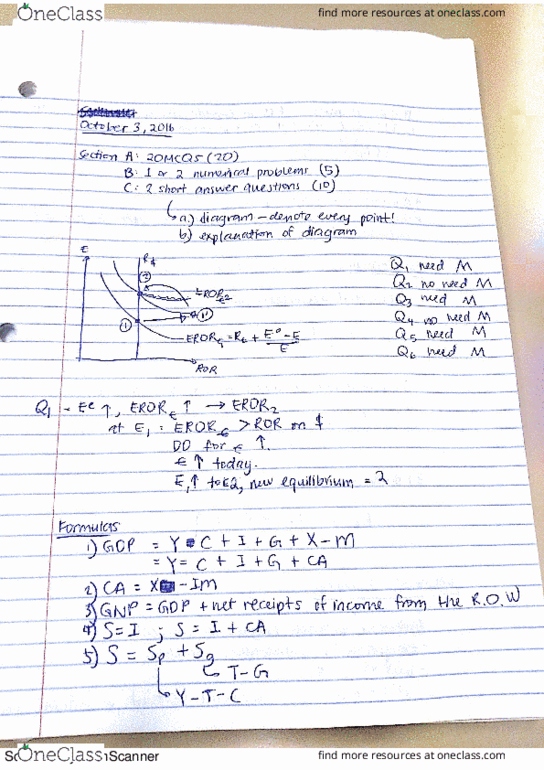 OneClass
find more resources at oneclass.com
October 3, 2016
Section A: 20MCQs (20)
B: 1 or 2 numerical problems (5)
C: 2 short answer questions (10)
a) diagram - denote every point!
b) explanation of diagram
E
R$
2
1'
1
EROR€2
EROR€1 = R€ + Ee - E / E
ROR
Q1 need M
Q2 no need M
Q3 need M
Q4 no need M
Q5 need M
Q6 need M
Q1 - Ee ↑, EROR€ ↑ → EROR2
at E1 : EROR€ > ROR on $
DD for € ↑.
€ ↑ today.
E1↑ to E2, new equilibrium = 2
Formulas
1) GDP = Y = C + I + G + X - M
= Y = C + I + G + CA
2) CA = X - Im
3) GNP = GDP + net receipts of income from the R.O.W
4) S = I ; S = I + CA
5) S = Sp + Sg
T - G
Y - T - C
OneClass
Scanner
find more resources at oneclass.com